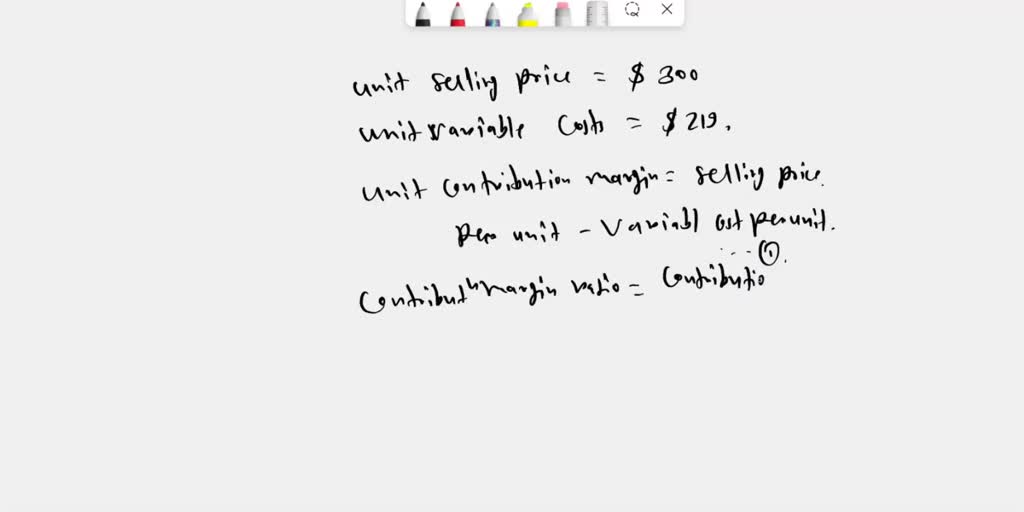 unit selling price = $ 300
unit variable Costs = $ 219.
unit contribution margin = selling price.
per unit - Variabl cost per unit.
... ①.
Contributn margin ratio = Contributio